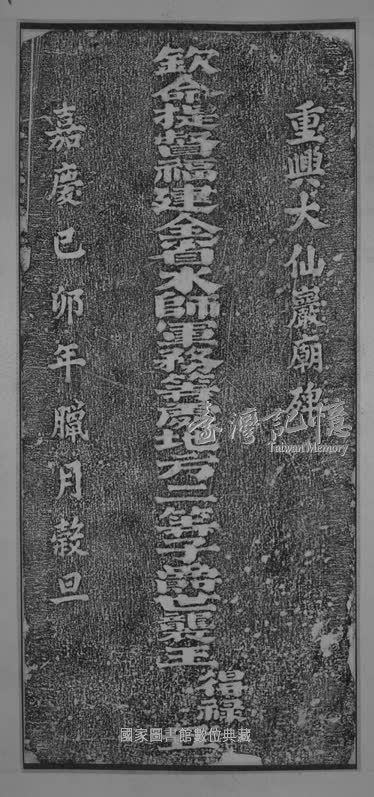 重興大仙巖廟碑
欽命提督福建全省水師軍務等處地方二等子爵世襲王得祿立
嘉慶己卯年臘月穀旦
臺灣記憶
Taiwan Memory
國家圖書館數位典藏